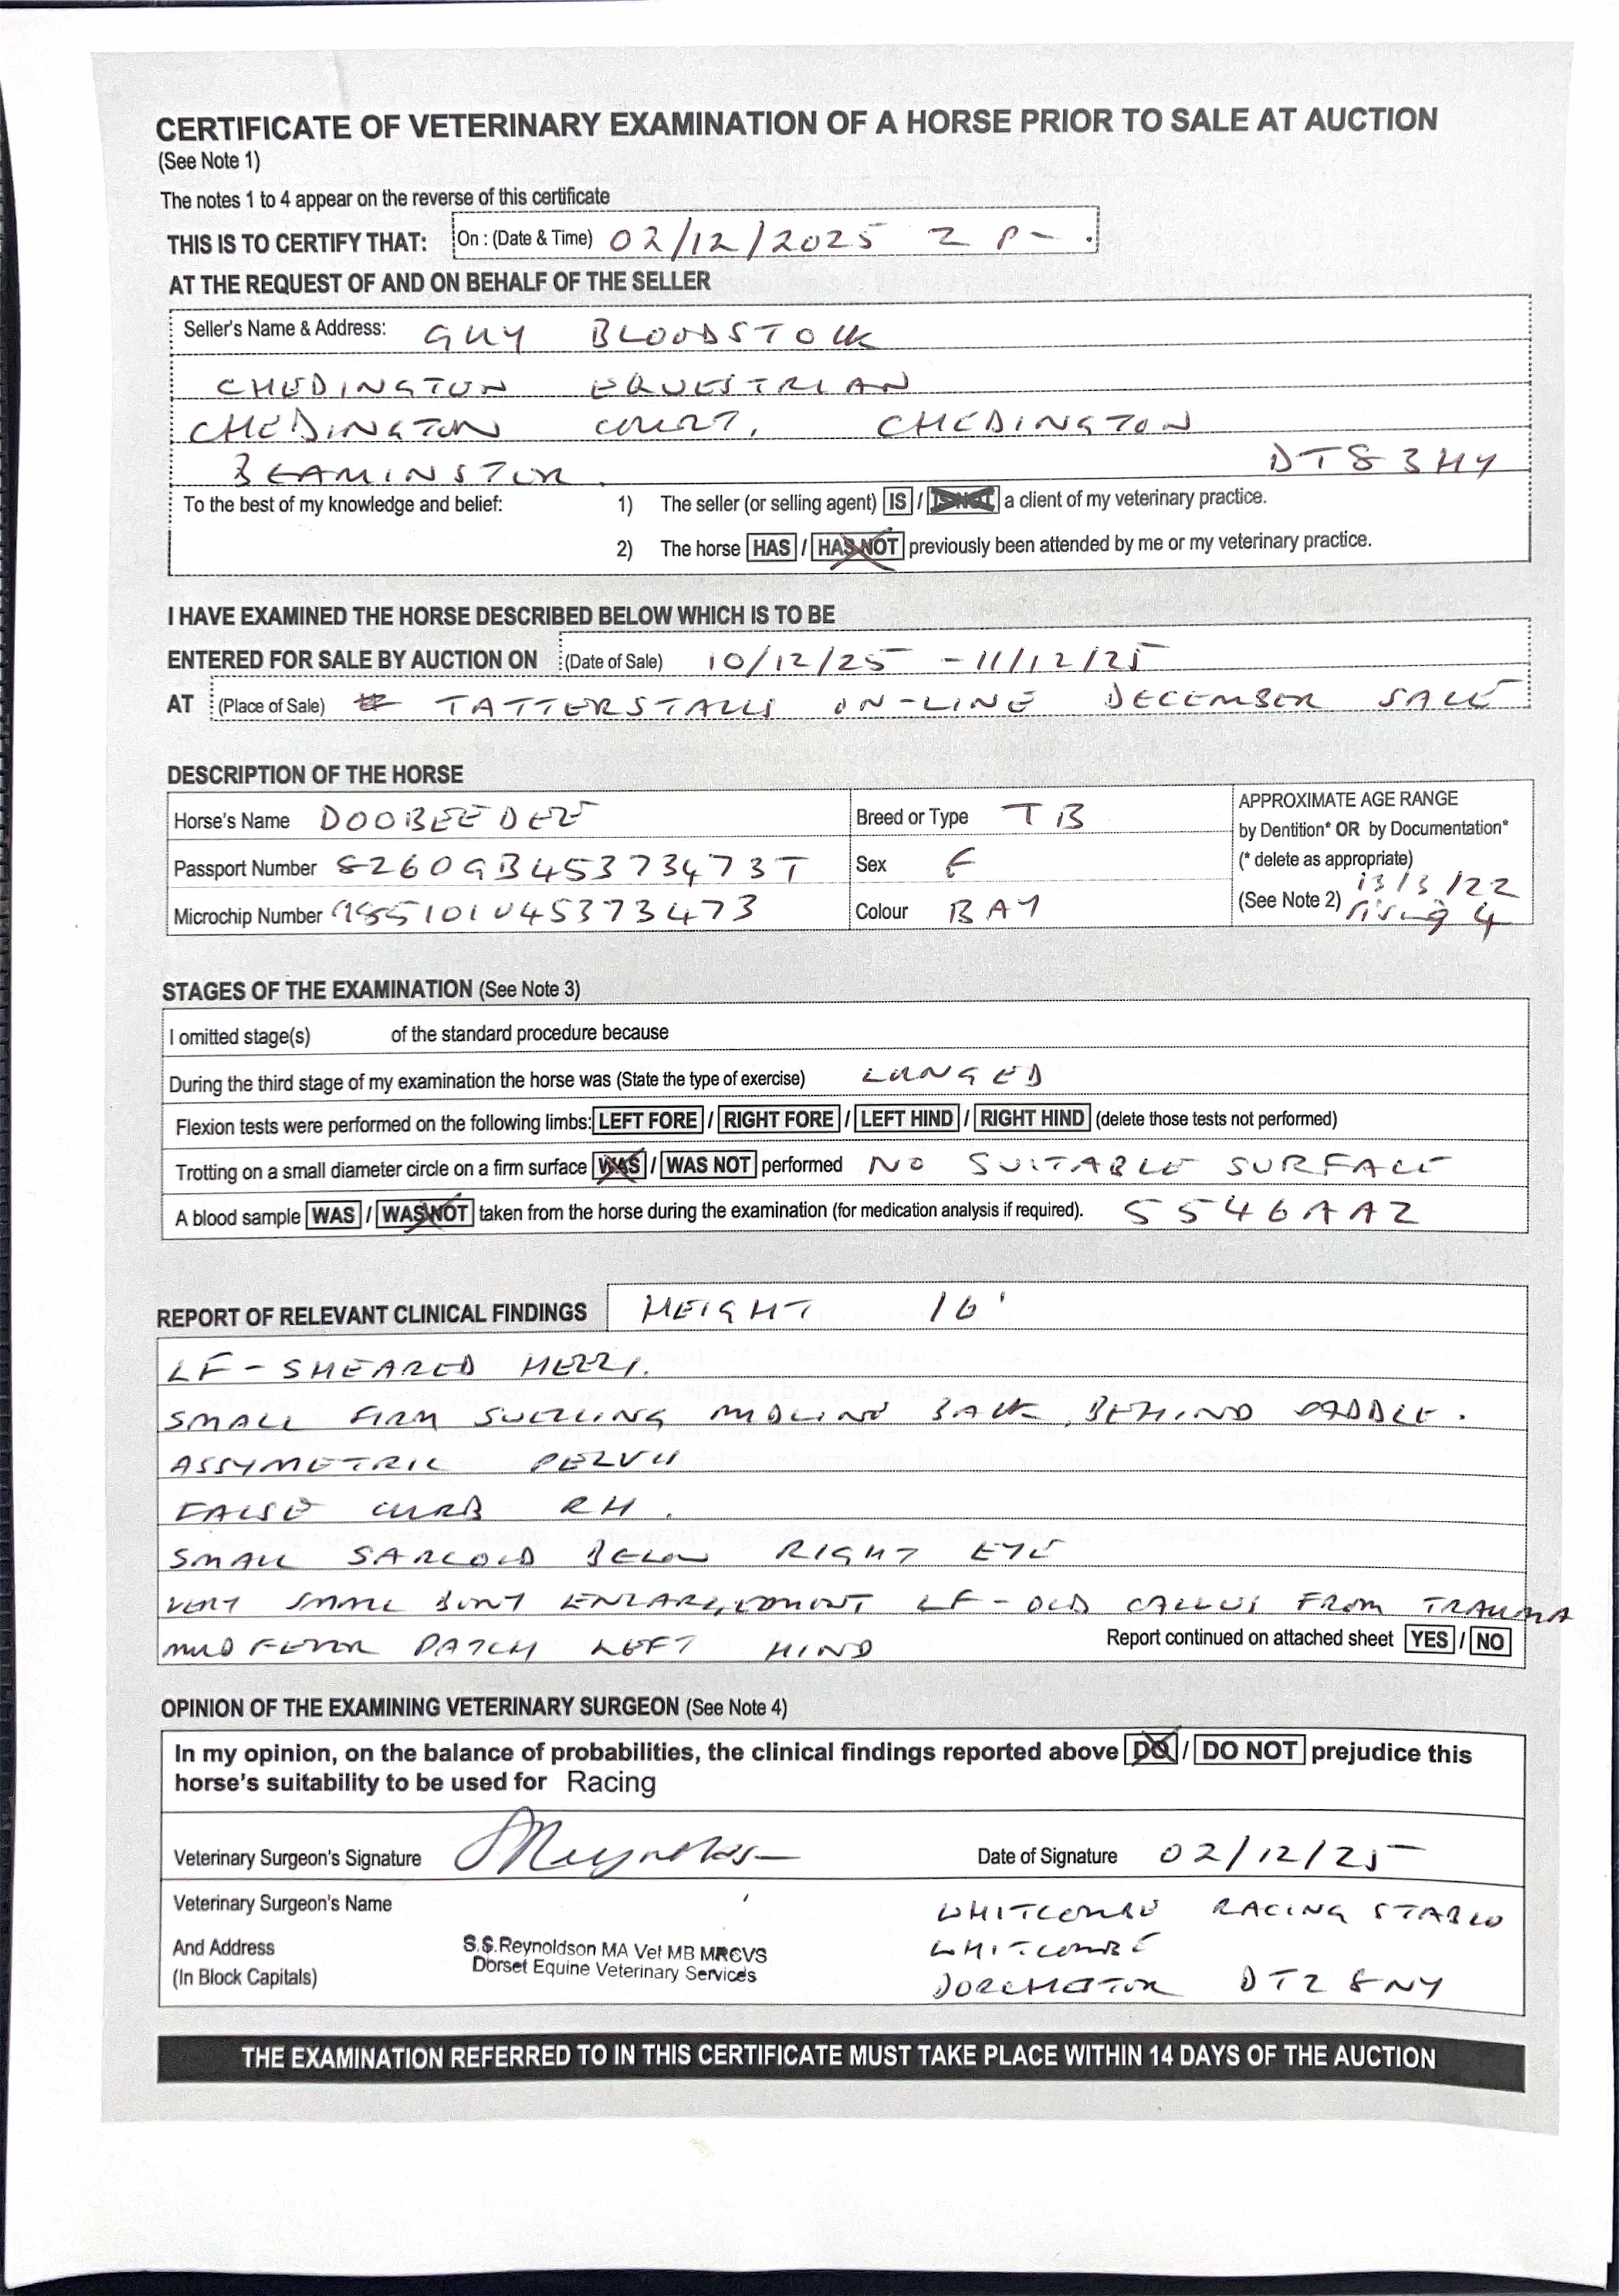 CERTIFICATE OF VETERINARY EXAMINATION OF A HORSE PRIOR TO SALE AT AUCTION
(See Note 1)
The notes 1 to 4 appear on the reverse of this certificate
THIS IS TO CERTIFY THAT: On : (Date & Time) 02/12/2025 2 p-.
AT THE REQUEST OF AND ON BEHALF OF THE SELLER
Seller's Name & Address: GUY BLOODSTOCK
CHEDINGTON EQUESTRIAN
CHEDINGTON COURT, CHEDINGTON
BEAMINSTER. DT8 3HY
To the best of my knowledge and belief: 1) The seller (or selling agent) IS / IS NOT a client of my veterinary practice.
2) The horse HAS / HAS NOT previously been attended by me or my veterinary practice.
I HAVE EXAMINED THE HORSE DESCRIBED BELOW WHICH IS TO BE
ENTERED FOR SALE BY AUCTION ON (Date of Sale) 10/12/25 - 11/12/25
AT (Place of Sale) TATTERSTALLS ON-LINE DECEMBER SALE
DESCRIPTION OF THE HORSE
Horse's Name DOOBEEDEE Breed or Type TB APPROXIMATE AGE RANGE
by Dentition* OR by Documentation*
Passport Number 8260GB45373473T Sex F (* delete as appropriate)
13/3/22
Microchip Number 985101045373473 Colour BAY (See Note 2) rising 4
STAGES OF THE EXAMINATION (See Note 3)
I omitted stage(s) of the standard procedure because
During the third stage of my examination the horse was (State the type of exercise) LUNGED
Flexion tests were performed on the following limbs: LEFT FORE / RIGHT FORE / LEFT HIND / RIGHT HIND (delete those tests not performed)
Trotting on a small diameter circle on a firm surface WAS / WAS NOT performed NO SUITABLE SURFACE
A blood sample WAS / WAS NOT taken from the horse during the examination (for medication analysis if required). 5546AAZ
REPORT OF RELEVANT CLINICAL FINDINGS HEIGHT 16'
LF - SHEARED HEELS.
SMALL FIRM SWELLING MIDLINE BACK, BEHIND SADDLE.
ASSYMETRIC PELVIS
FALSE CURB RH.
SMALL SARCOID BELOW RIGHT EYE
VERY SMALL BONY ENLARGEMENT LF - OLD CALLUS FROM TRAUMA
MUD FEVER PATCH LEFT HIND Report continued on attached sheet YES / NO
OPINION OF THE EXAMINING VETERINARY SURGEON (See Note 4)
In my opinion, on the balance of probabilities, the clinical findings reported above DO / DO NOT prejudice this
horse's suitability to be used for Racing
Veterinary Surgeon's Signature SReynoldson Date of Signature 02/12/25
Veterinary Surgeon's Name WHITCOMBE RACING STABLE
And Address S.S.Reynoldson MA Vet MB MRCVS WHITCOMBE
(In Block Capitals) Dorset Equine Veterinary Services DORCHESTER DT2 8NY
THE EXAMINATION REFERRED TO IN THIS CERTIFICATE MUST TAKE PLACE WITHIN 14 DAYS OF THE AUCTION